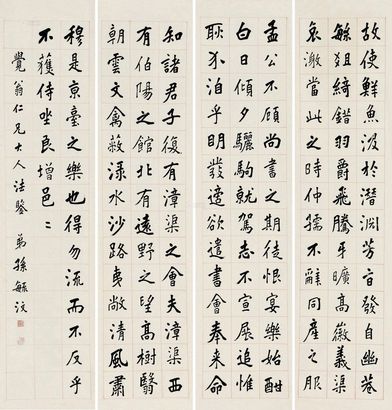 故使鮮魚汲于潛淵芳旨發自幽巷
繁俎綺錯羽爵飛騰牙曠高徽義渠
哀激當此之時仲孺不辭同產之服
孟公不顧尚書之期徒恨宴樂始酣
白日傾夕驪駒就駕志不宣展追惟
耿介泊乎明發適欲遣書會奉來命
知諸君子復有漳渠之會夫漳渠西
有伯陽之館北有遠野之望高樹翳
朝雲文禽蔽淥水沙路夷敞清風肅
穆是京臺之樂也得勿流而不反乎
不獲侍坐良增邑〻
覺翁仁兄大人法鑒 弟孫毓汶